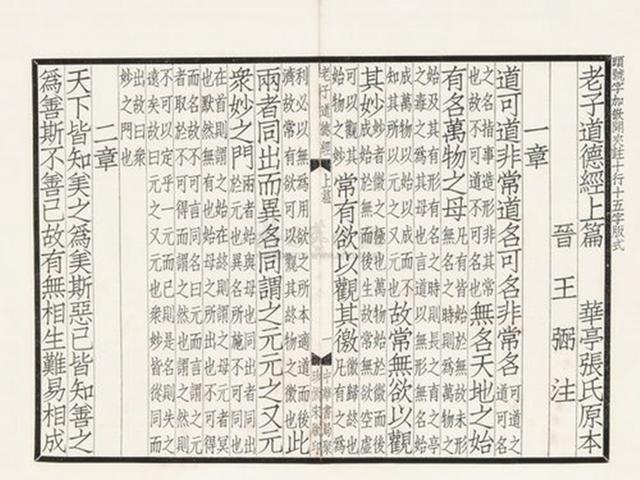 頭號字加嵌開夾註十行十五字版式
老子道德經上篇 華亭張氏原本
晉 王 弼 注
一章
道可道非常道名可名非常名 可道之道可名
之名指事造形非其常也故不可道不可名也 無名天地之始
有名萬物之母 凡有皆始於無故未形無名之時則為萬物之
始及其有形有名之時則長之育之亭之毒之為其母也言道以無形無名始
成萬物以始以成而不知其所以元之又元也 故常無欲以觀
其妙 妙者微之極也萬物始於微而後成始於無而後生故常無欲空虛
可以觀其始物之妙 常有欲以觀其徼 徼歸終也凡有之為
老子道德經 上篇 一 中華書局聚珍仿宋版印
利必以無為用欲之所本適道而後濟故常有欲可以觀其終物之徼也 此
兩者同出而異名同謂之元元之又元
衆妙之門 兩者始與母也同出者同出於元也異名所施不可同也
在首則謂之始在終則謂之母元者冥也默然無有也始母之所出也不可得
而名故不可言同名曰元而言謂之元者取於不可得而謂之然也謂之然則
不可以定乎一元而已則是名則失之遠矣故曰元之又元也衆妙皆從同而
出故曰衆妙之門也
二章
天下皆知美之爲美斯惡已皆知善之
爲善斯不善已故有無相生難易相成